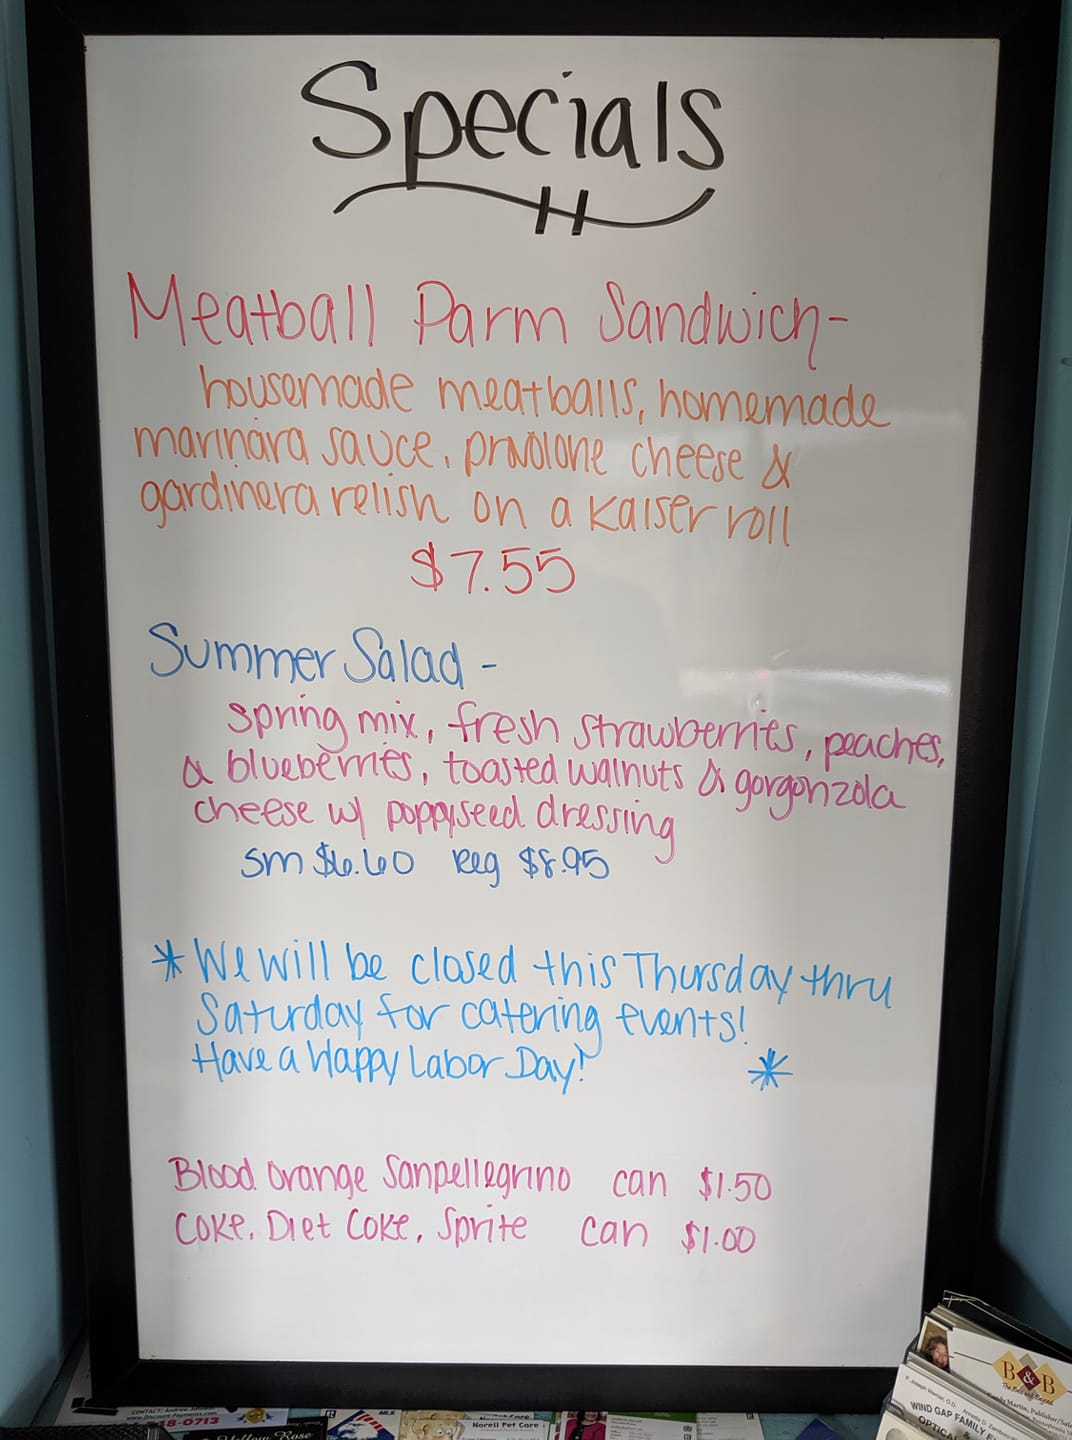 Specials
Meatball Parm Sandwich-
housemade meatballs, homemade
marinara sauce, provolone cheese &
gardinera relish on a Kaiser roll
$7.55
Summer Salad -
spring mix, fresh strawberries, peaches,
& blueberries, toasted walnuts & gorgonzola
cheese w/ poppyseed dressing
sm $6.60 reg $8.95
* We will be closed this Thursday thru
Saturday for catering events!
Have a Happy Labor Day! *
Blood Orange Sanpellegrino can $1.50
Coke, Diet Coke, Sprite can $1.00
B & B
WIND GAP FAMILY
OPTIC
CONTACT: Andrew
www.Discount-Payments.com
48-0713
MLS
Norell Pet Care
Yellow Rose